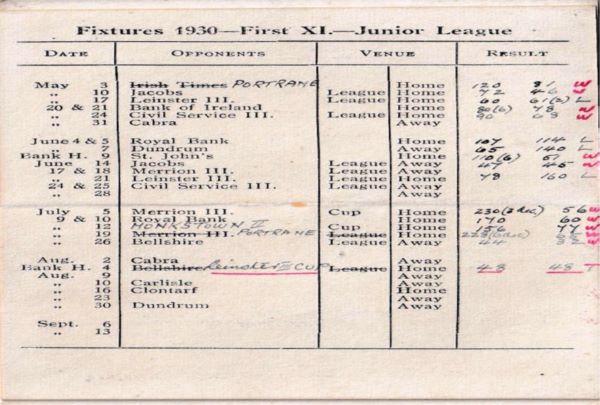 Fixtures 1930—First XI.—Junior League
DATE OPPONENTS VENUE RESULT
May 3 Irish Times PORTRANE Home 120 81 W
„ 10 Jacobs League Home 72 46 W
„ 17 Leinster III. League Home 60 61(2) L
20 & 21 Bank of Ireland Home 80(6) 78 W
„ 24 Civil Service III. League Away 90 69 W
„ 31 Cabra Away
June 4 & 5 Royal Bank Home 107 114 L
„ 7 Dundrum Away 65 140 L
Bank H. 9 St. John's Home 110(6) 51 W
June 14 Jacobs League Away 47 45 W
17 & 18 Merrion III. League Away
„ 21 Leinster III. League Home 78 160 L
24 & 25 Civil Service III. League Away
„ 28 Away
July 5 Merrion III. Cup Home 230(3 dec) 56 W
9 & 10 Royal Bank Home 170 60 W
„ 12 MONKSTOWN II Cup Home 156 77 W
„ 19 Merrion III. PORTRANE League Home W
„ 26 Bellshire Away 44 32 W
Aug. 2 Cabra Away
Bank H. 4 Bellshire Leinster III CUP League Home 48 48 T
Aug. 9 Away
„ 10 Carlisle Away
„ 16 Clontarf Home
„ 23 Away
„ 30 Dundrum Away
Sept. 6
„ 13